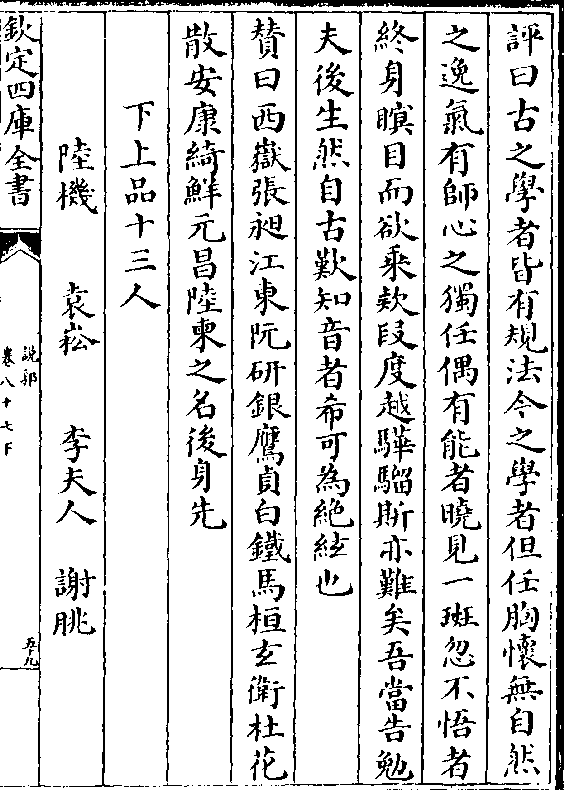 評曰古之學者皆有規法今之學者但任胸懷無自然
之逸氣有師心之獨任偶有能者曉見一斑忽不悟者
終身瞑目而欲乘欵段度越驊騮斯亦難矣吾當告勉
夫後生然自古歎知音者希可為絶絃也
贊曰西嶽張昶江東阮研銀鷹貞白鐵馬桓玄衛杜花
散安康綺鮮元昌陸柬之名後身先
下上品十三人
陸機 袁崧 李夫人 謝朓
欽定四庫全書
說郛
卷八十七下
五九